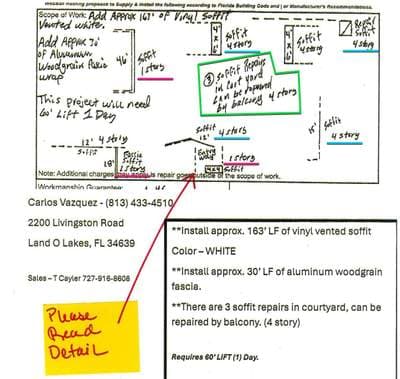 Scope of Work: Add Approx 161' of Vinyl Soffit
Vented white.
Add Approx 30'
of Aluminum
Woodgrain Fascia
wrap
This project will need
60' Lift 1 Day
46'
Soffit
1 story
4'
x
6'
Soffit
4 story
3 Soffit Repairs
in Court yard
can be repaired
by balcony 4 story
4'
x
6'
Soffit
4 story
Soffit
4 story
Soffit
4 story
12' 4 story
Soffit
18'
Fascia
Soffit
1 story
Soffit
4 story
Entry
way
1 story
4x4 Soffit
Soffit
4 story
Note: Additional charges may apply is repair goes outside of the scope of work.
Workmanship Guarantee:
Carlos Vazquez - (813) 433-4510
2200 Livingston Road
Land O Lakes, FL 34639
Sales – T Cayler 727-916-8608
Please
Read
Detail
**Install approx. 163' LF of vinyl vented soffit
Color – WHITE
**Install approx. 30' LF of aluminum woodgrain
fascia.
**There are 3 soffit repairs in courtyard, can be
repaired by balcony. (4 story)
Requires 60' LIFT (1) Day.